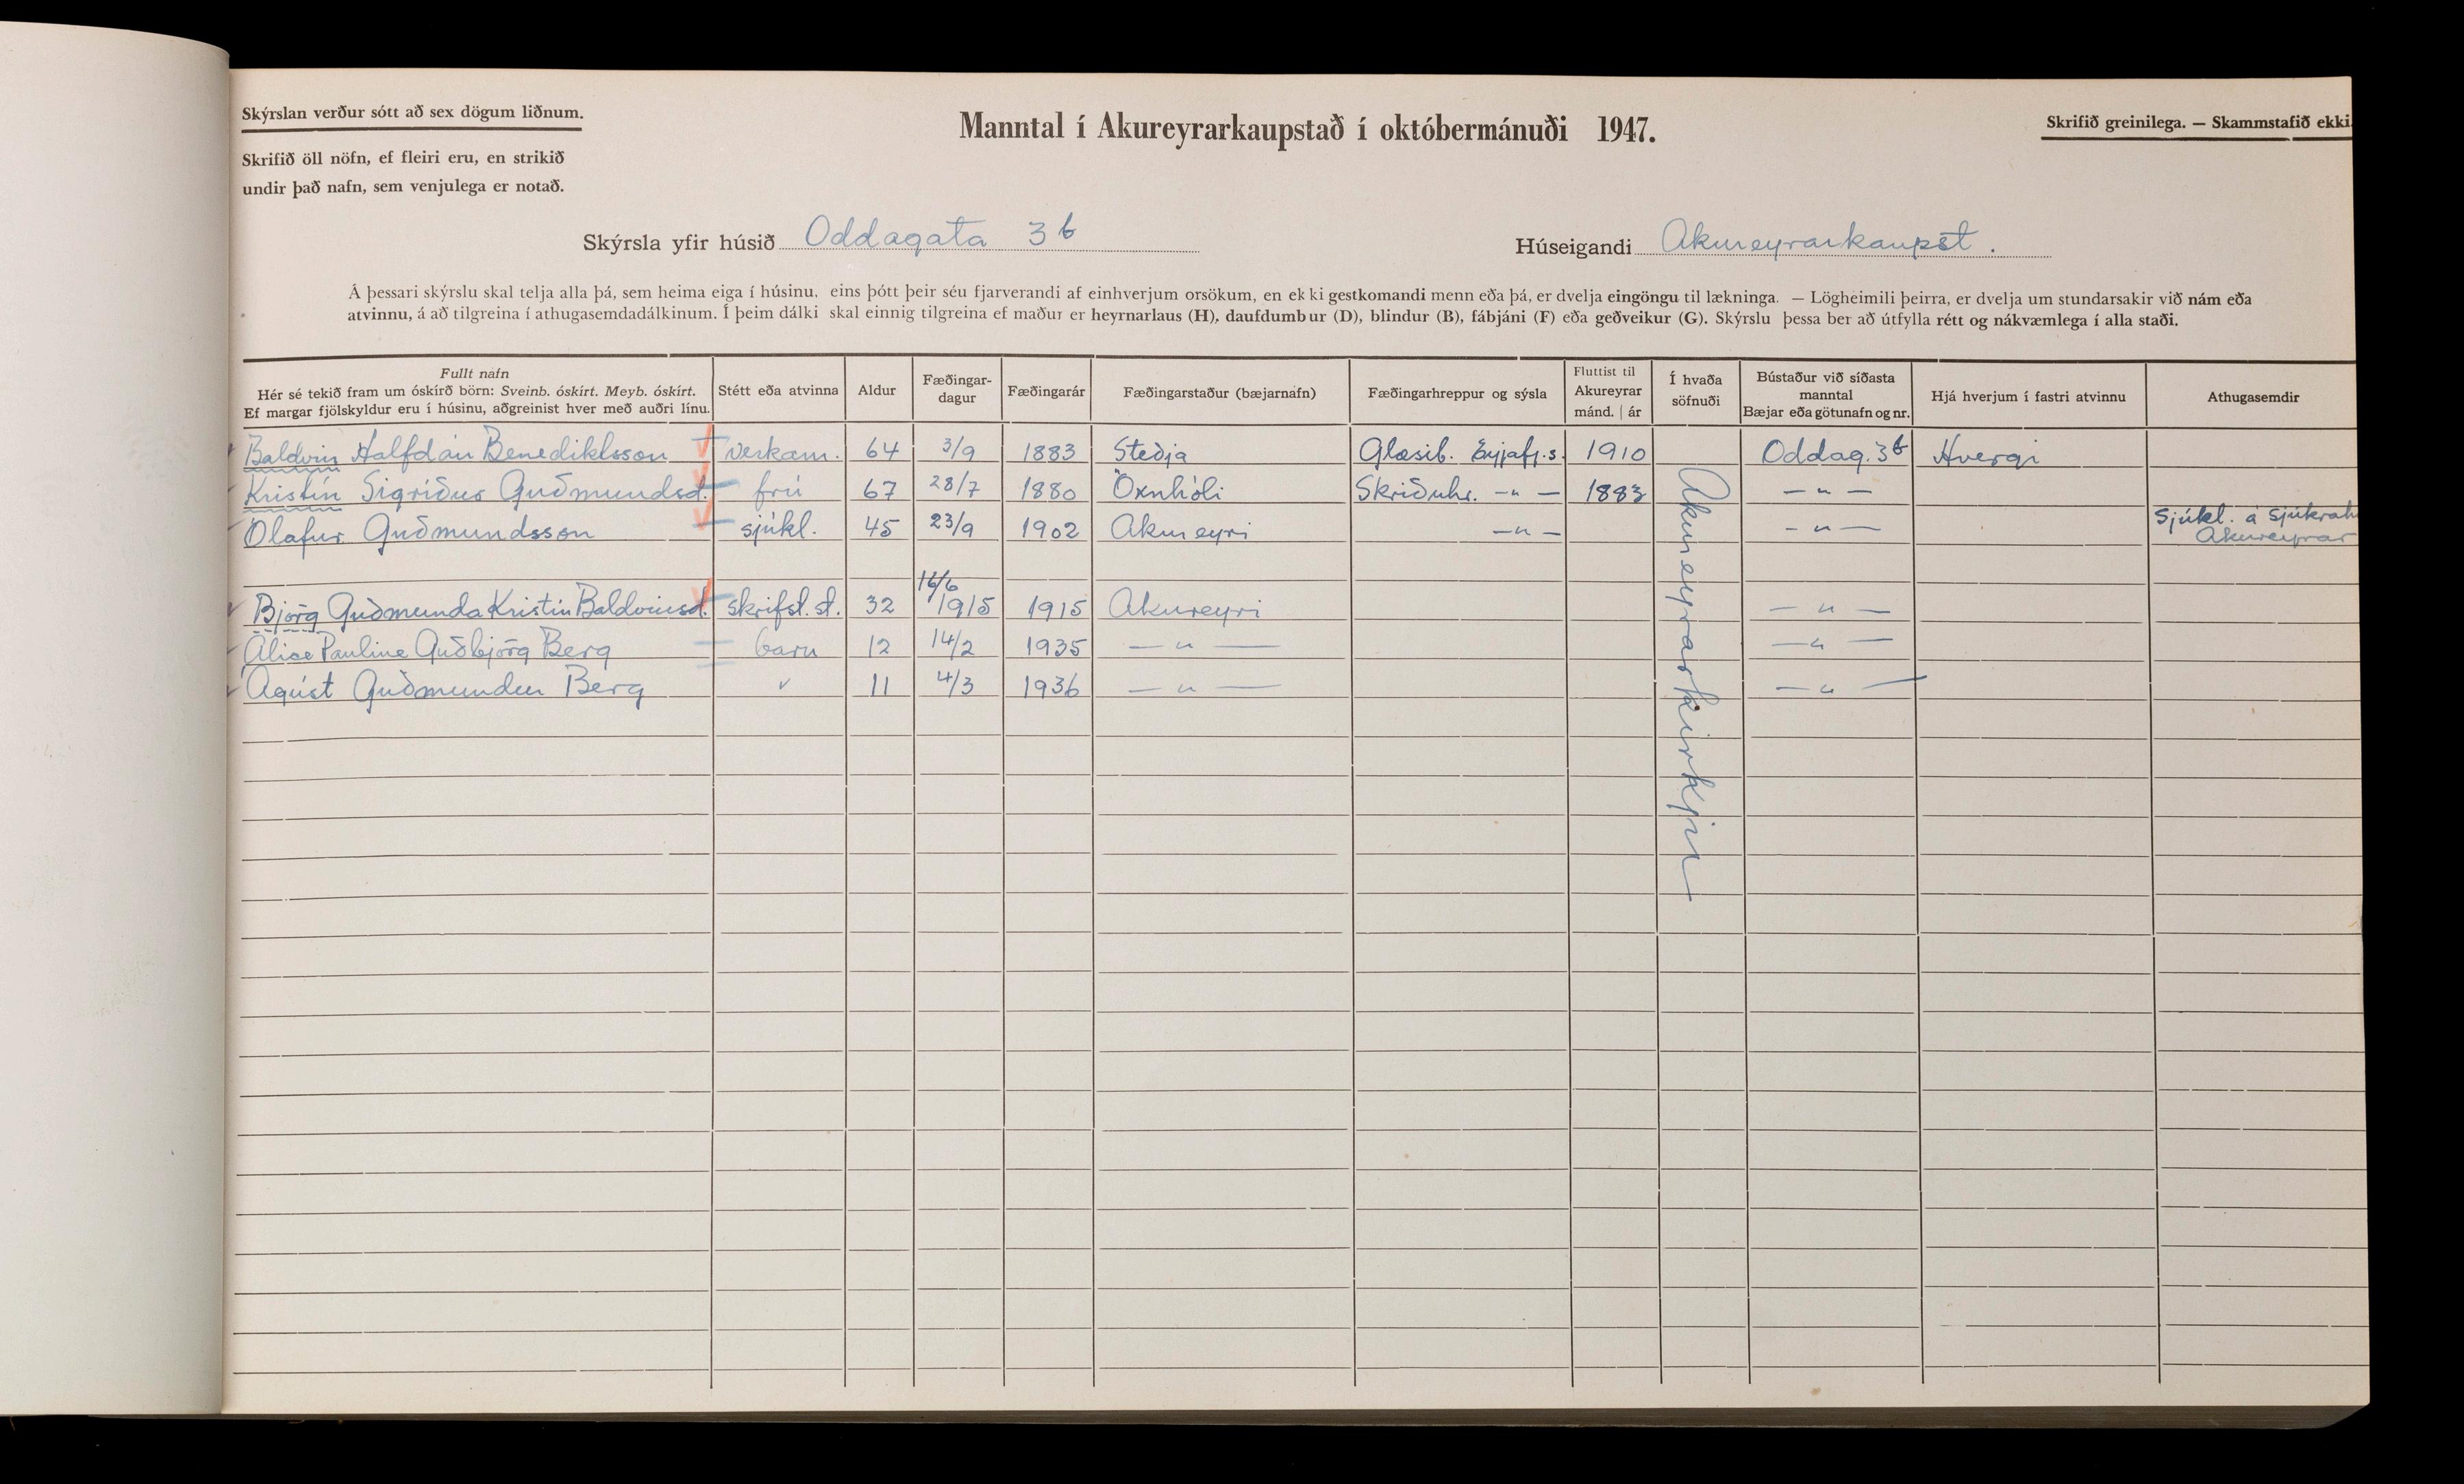 Skýrslan verður sótt að sex dögum liðnum.
Manntal í Akureyrarkaupstað í októbermánuði 1947.
Skrifið greinilega. — Skammstafið ekki.
Skrifið öll nöfn, ef fleiri eru, en strikið
undir það nafn, sem venjulega er notað.
Skýrsla yfir húsið Oddagata 3b
Húseigandi Akureyrarkaupst.
Á þessari skýrslu skal telja alla þá, sem heima eiga í húsinu, eins þótt þeir séu fjarverandi af einhverjum orsökum, en ekki gestkomandi menn eða þá, er dvelja eingöngu til lækninga. — Lögheimili þeirra, er dvelja um stundarsakir við nám eða
atvinnu, á að tilgreina í athugasemdadálkinum. Í þeim dálki skal einnig tilgreina ef maður er heyrnarlaus (H), daufdumbur (D), blindur (B), fábjáni (F) eða geðveikur (G). Skýrslu þessa ber að útfylla rétt og nákvæmlega í alla staði.
Fullt nafn
Hér sé tekið fram um óskírð börn: Sveinb. óskírt. Meyb. óskírt.
Ef margar fjölskyldur eru í húsinu, aðgreinist hver með auðri línu.
Stétt eða atvinna
Aldur
Fæðingar-
dagur
Fæðingarár
Fæðingarstaður (bæjarnafn)
Fæðingarhreppur og sýsla
Fluttist til
Akureyrar
mánd. | ár
Í hvaða
söfnuði
Bústaður við síðasta
manntal
Bæjar eða götunafn og nr.
Hjá hverjum í fastri atvinnu
Athugasemdir
Baldvin Halfdán Benediktsson verkam. 64 3/9 1883 Steðja Glæsib. Eyjafj.s. 1910 Oddag. 3b Hvergi
Kristín Sigríður Guðmundsd. frú 67 28/7 1880 Öxnhóli Skriðuhr. -"- 1883 -"-
Ólafur Guðmundsson sjúkl. 45 23/9 1902 Akureyri -"- -"- Sjúkl. á Sjúkrah
Akureyrar
Björg Guðmunda Kristín Baldvinsd. skrifst.st. 32 16/6 1915 1915 Akureyri -"-
Alice Pauline Guðbjörg Berg barn 12 14/2 1935 -"- -"-
Ágúst Guðmundur Berg 11 4/3 1936 -"- -"-
Akureyrarkirkju